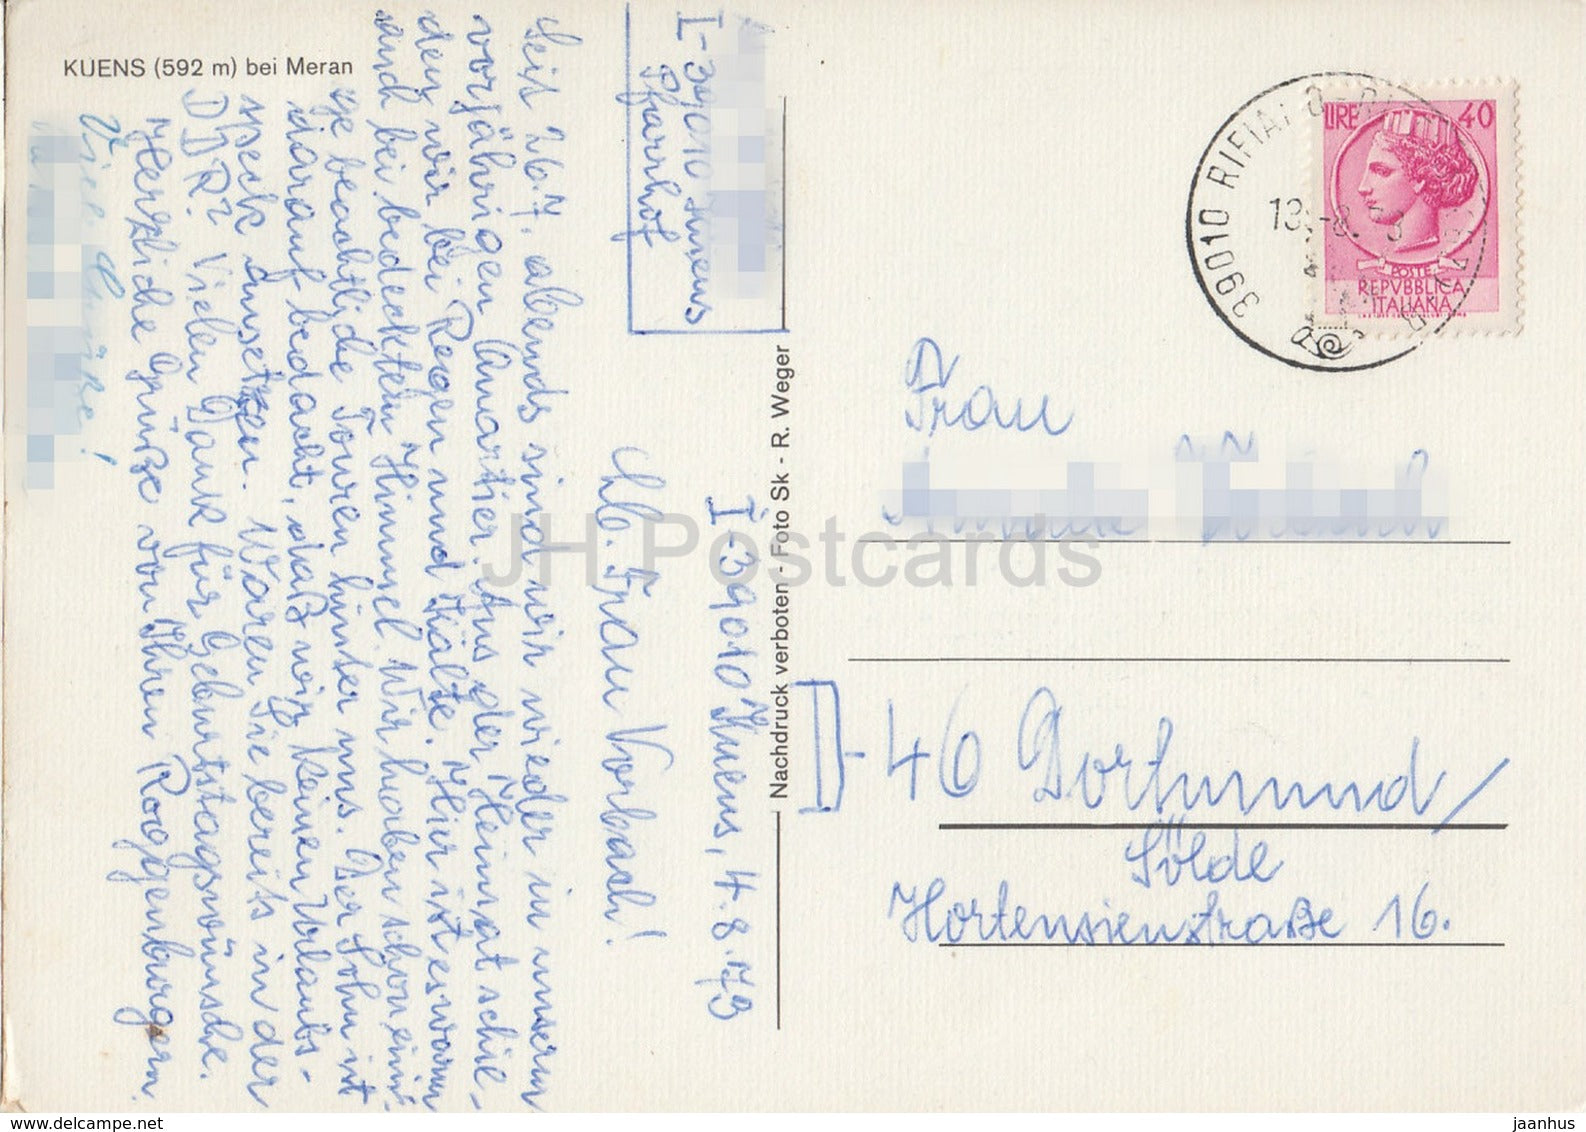 KUENS (592 m) bei Meran
I-39010 Kuens
Pfarrhof
I-39010 Kuens, 4.8.73
Lb. Frau Vorbach!
Seit 26.7. abends sind wir wieder in unserm
vorjährigen Quartier. Aus der Heimat schie-
den wir bei Regen und Kälte. Hier ist es warm
auch bei bedecktem Himmel. Wir haben schon eini-
ge beachtliche Touren hinter uns. Der Sohn ist
darauf bedacht, daß wir keinen Urlaubs-
speck ansetzen. Waren Sie bereits in der
DDR? Vielen Dank für Geburtstagswünsche.
Herzliche Grüße von Ihren Roggenburgern.
Viele Grüße!
Nachdruck verboten - Foto Sk - R. Weger
39010 RIFIA
13.-8.73
LIRE 40
POSTE
REPVBBLICA
ITALIANA
Frau
D-46 Dortmund/
Sölde
Hortensienstraße 16.
JH Postcards
www.delcampe.net
jaanhus